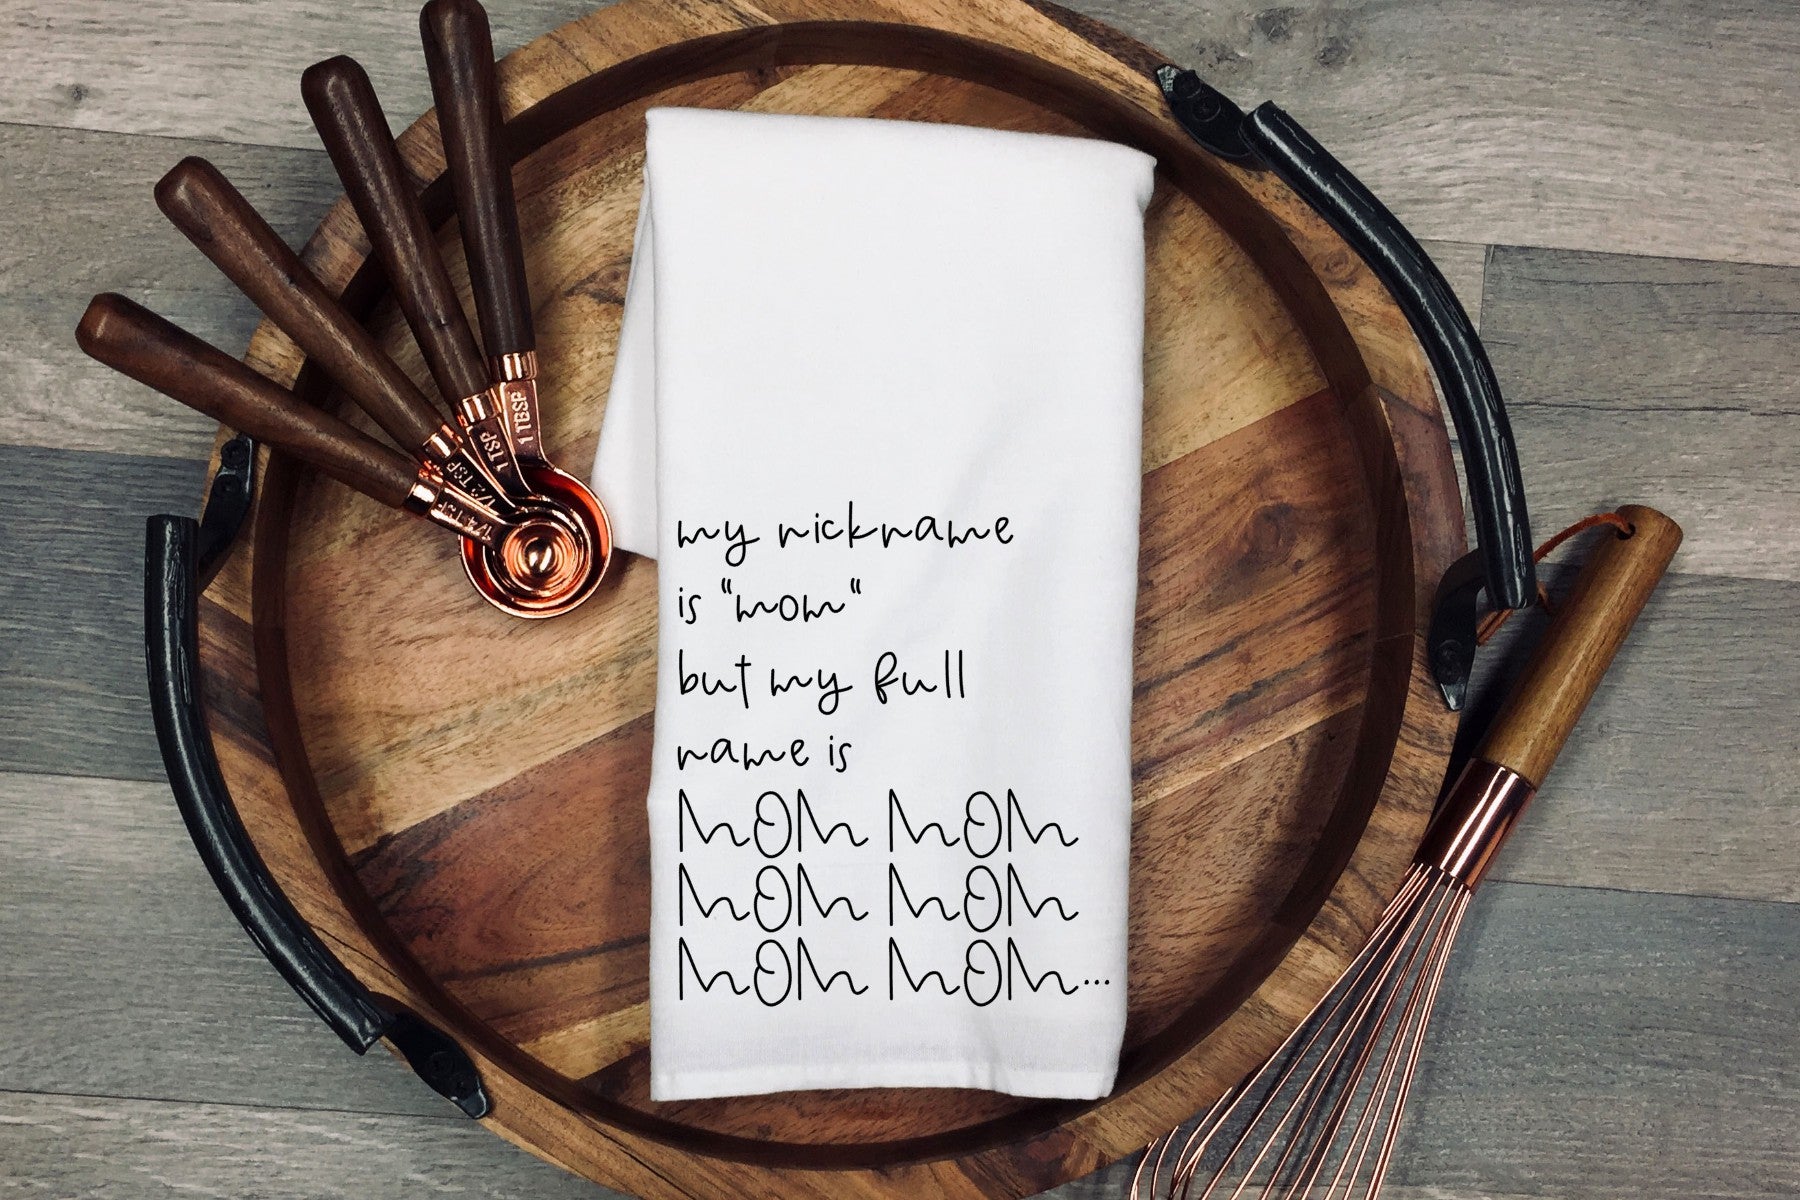 my nickname
is "mom"
but my full
name is
MOM MOM
MOM MOM
MOM MOM...
1 TBSP
1 TSP
1/2 TSP
1/4 TSP